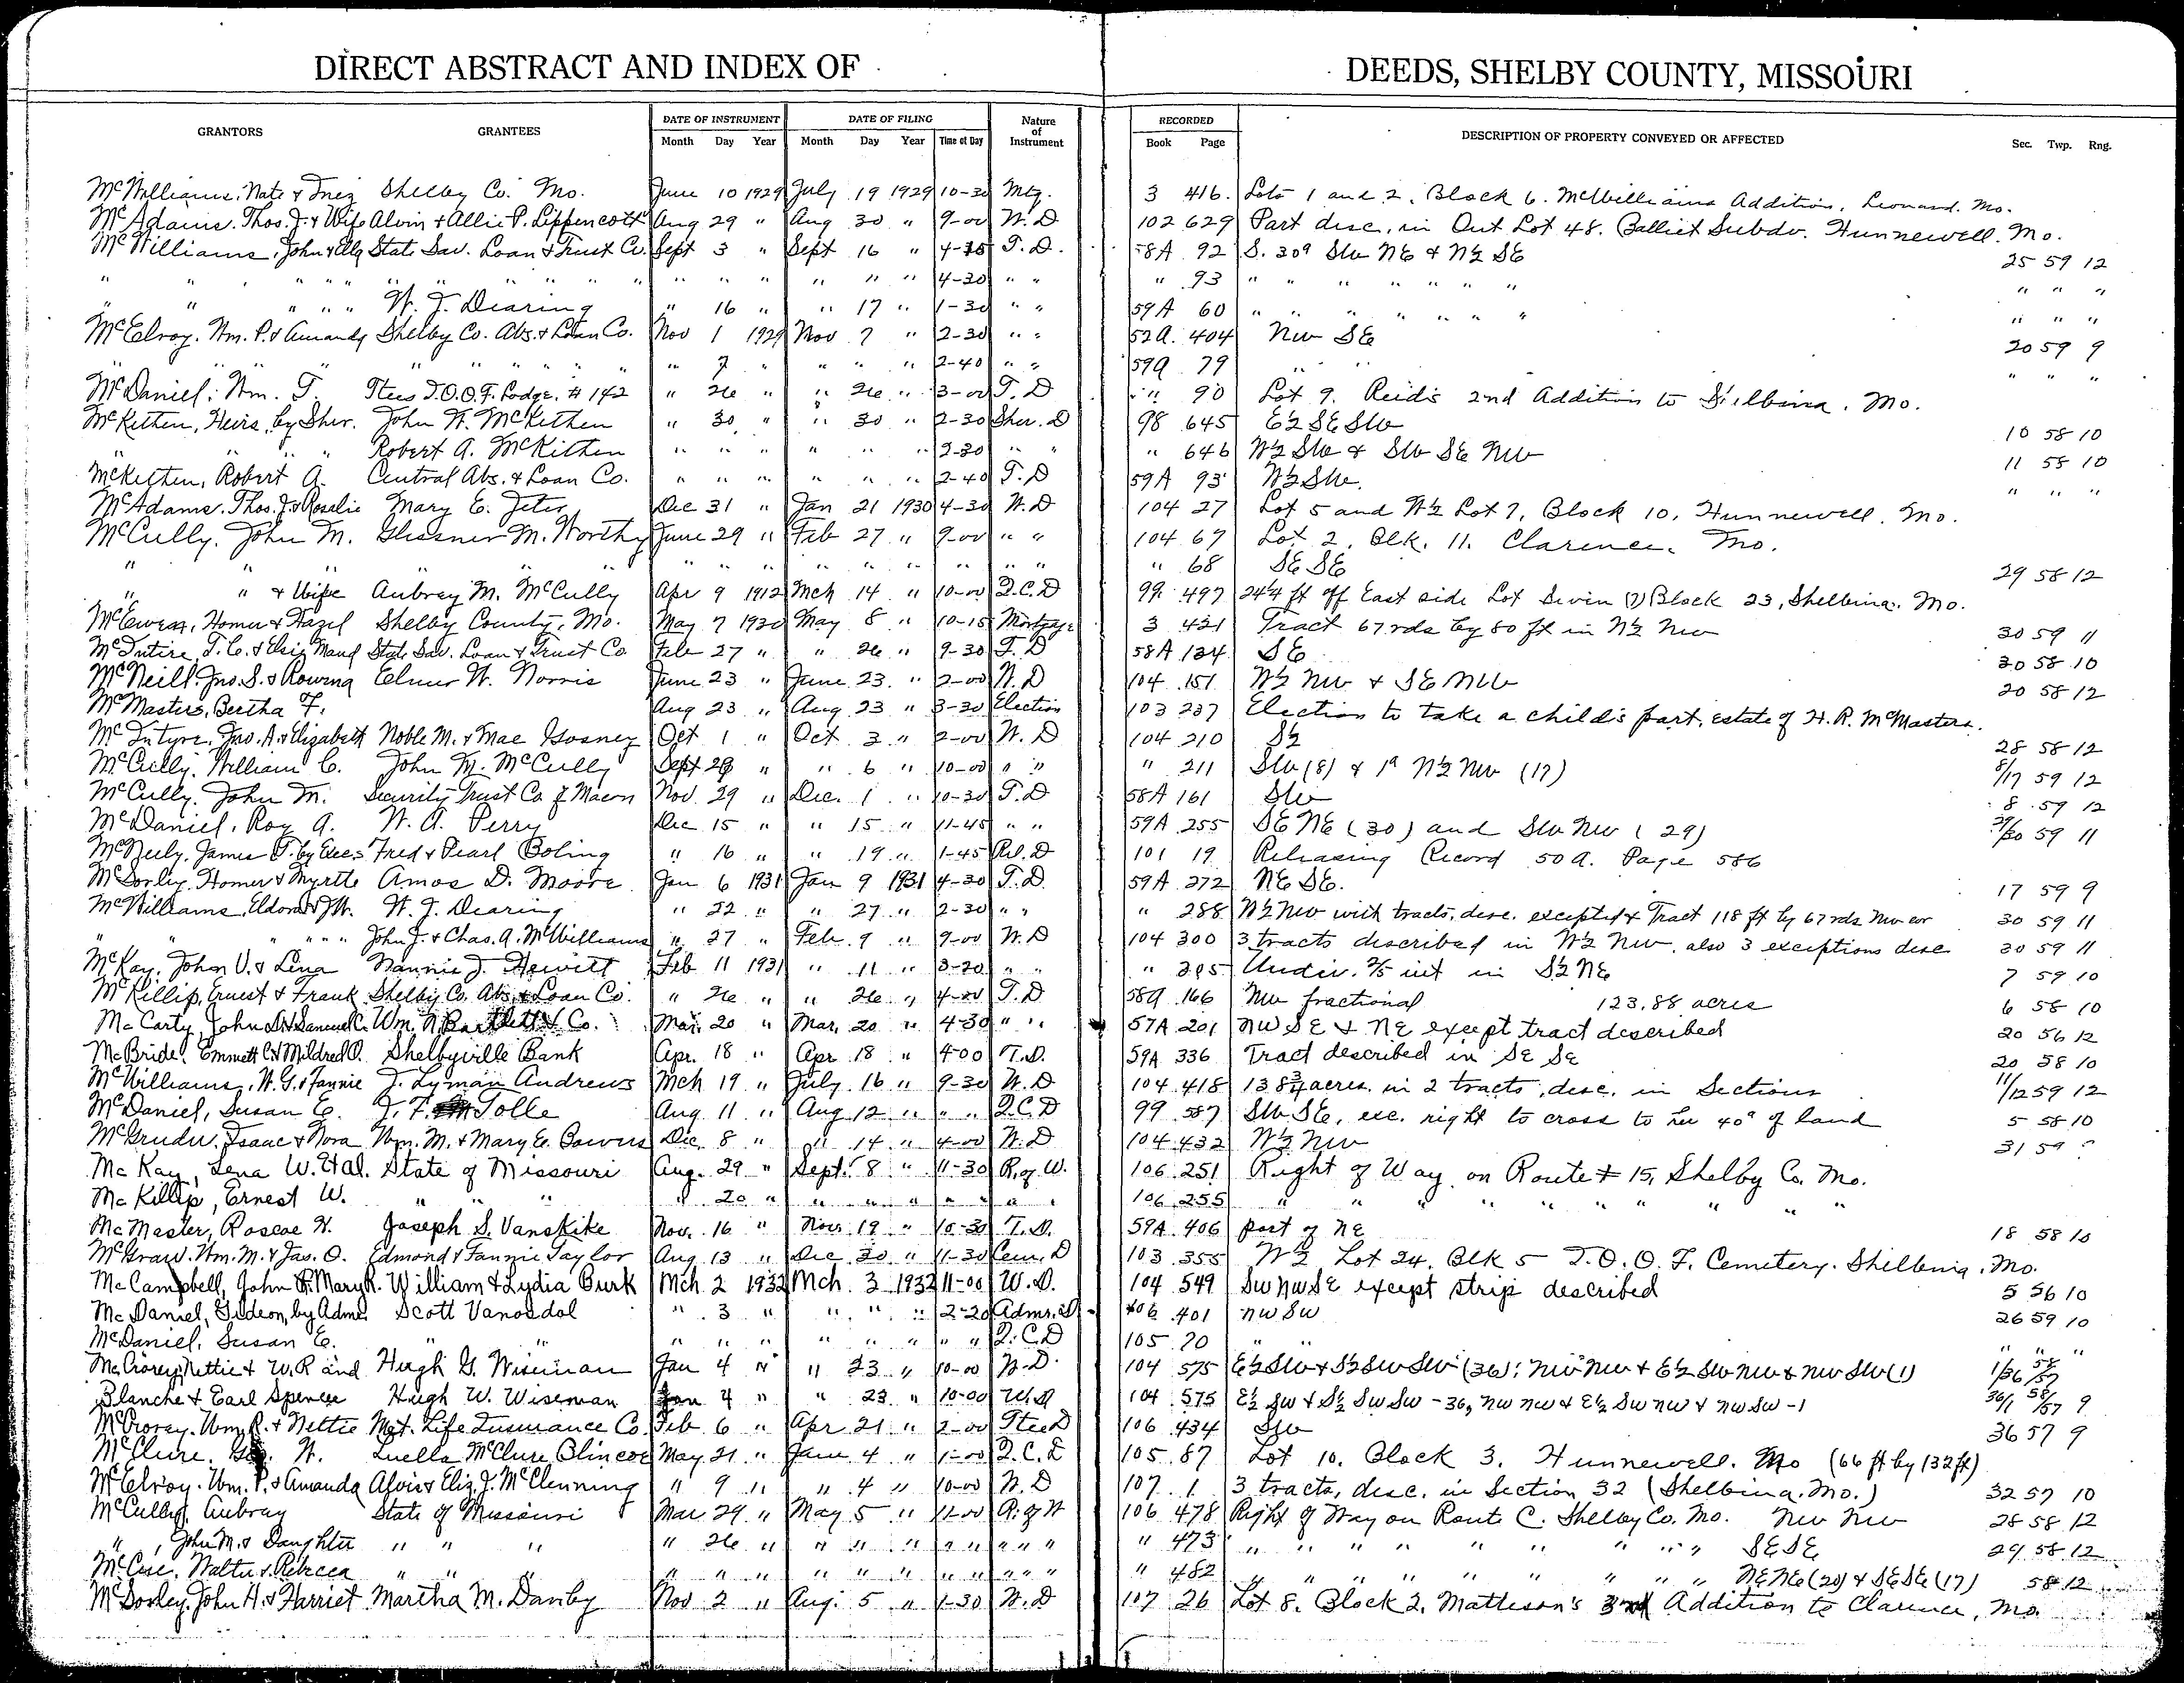 DIRECT ABSTRACT AND INDEX OF DEEDS, SHELBY COUNTY, MISSOURI
GRANTORS GRANTEES DATE OF INSTRUMENT DATE OF FILING Nature of Instrument RECORDED DESCRIPTION OF PROPERTY CONVEYED OR AFFECTED Sec. Twp. Rng.
Month Day Year Month Day Year Time of Day Book Page
McWilliams, Nate & Inez Shelby Co. Mo. June 10 1929 July 19 1929 10-30 Mtg. 3 416 Lots 1 and 2, Block 6. McWilliams Addition, Leonard. Mo.
McAdams. Thos. J. & Wife Alvin & Allie P. Lippencott Aug 29 " Aug 30 " 9-00 W. D 102 629 Part desc. in Out Lot 48. Balliet Subdv. Hunnewell. Mo.
McWilliams, John & State Sav. Loan & Trust Co. Sept 3 " Sept 16 " T. D. 58A 92 S. 30a SW NE & N½ SE 25 59 12
" " " " " " " " " " " " " " " 4-30 " " " 93 " " " " " " " " " "
" " " " W. J. Dearing " 16 " " 17 " 1-30 " " 59A 60 " " " " " " " " " "
McElroy. Wm. P. & Amanda Shelby Co. Abs. & Loan Co. Nov 1 1929 Nov 7 " 2-30 " " 52A. 404 NW SE 20 59 9
" " " " " " " " " 7 " " " " 2-40 " " 59A 79 " " " " "
McDaniel, Wm. T. Stees I.O.O.F. Lodge. # 142 " 26 " " 26 " 3-00 T. D " 90 Lot 9. Reid's 2nd Addition to Shelbina. Mo.
McKethen, Heirs, by Sher. John W. McKethen " 30 " " 30 " 2-30 Sher. D 98 645 E½ SE SW 10 58 10
" " " Robert A. McKithen " " " " " " 2-30 " " " 646 W½ SW & SW SE NW 11 58 10
McKethen, Robert A. Central Abs. & Loan Co. " " " " " " 2-40 T. D 59A 93 W½ SW. " " "
McAdams. Thos. J. & Rosalie Mary E. Jeter Dec 31 " Jan 21 1930 4-30 W. D 104 27 Lot 5 and W½ Lot 7, Block 10, Hunnewell. Mo.
McCully. John M. Glessner M. Worthy June 29 " Feb 27 " 9-00 " " 104 67 Lot 2, Blk. 11. Clarence. Mo.
" " " " " " " " " " " " " " " 68 SE SE 29 58 12
" " & Wife Aubray M. McCully Apr 9 1912 Mch 14 " 10-00 Q.C.D 99 497 24¼ ft off East side Lot Seven (7) Block 23, Shelbina. Mo.
McEwen, Homer & Hazel Shelby County, Mo. May 7 1930 May 8 " 10-15 Mortgage 3 421 Tract 67 rds by 80 ft in N½ NW 30 59 11
McIntire, T. C. & Elsie Maud State Sav. Loan & Trust Co Feb 27 " " 26 " 9-30 T. D 58A 134 SE 30 58 10
McNeill. Jno. S. & Rowena Elmer W. Norris June 23 " June 23. " 2-00 W. D 104 151 W½ NW & SE NW 20 58 12
McMasters, Bertha F. Aug 23 " Aug 23 " 3-30 Election 103 237 Election to take a child's part, estate of H. R. McMasters.
McIntyre. Jno. A. & Elizabeth Noble M. & Mae Gosney Oct 1 " Oct 3 " 2-00 W. D 104 210 S½ 28 58 12
McCully. William C. John M. McCully Sept 29 " " 6 " 10-00 " " " 211 SW (8) & 1a N½ NW (17) 8/17 59 12
McCully. John M. Security Trust Co of Macon Nov. 29 " Dec. 1 " 10-30 T. D 58A 161 SW 8 59 12
McDaniel. Roy A. W. A. Perry Dec 15 " " 15 " 11-45 " " 59A 255 SE NE (30) and SW NW (29) 29/30 59 11
McNeely. James T. by Exec. Fred & Pearl Boling " 16 " " 19 " 1-45 Rel. D 101 19 Releasing Record 50 A. Page 586
McSorley. Homer & Myrtle Amos D. Moore Jan 6 1931 Jan 9 1931 4-30 T. D 59A 272 NE SE. 17 59 9
McWilliams, Eldora & J.W. W. J. Dearing " 22 " " 27 " 2-30 " " " 288 N½ NW with tracts, desc. excepted & Tract 118 ft by 67 rds NW cor 30 59 11
" " " " John J. & Chas. A. McWilliams " 27 " Feb. 9 " 9-00 W. D 104 300 3 tracts described in N½ NW, also 3 exceptions desc 30 59 11
McKay. John V. & Lena Nannie J. Hewitt Feb 11 1931 " 11 " 3-20 " " " 305 Undiv. ⅖ int in S½ NE 7 59 10
McKillip, Ernest & Frank Shelby Co. Abs. & Loan Co. " 26 " " 26 " T. D 58A 166 NW fractional 123.88 acres 6 58 10
McCarty, John Wm. N. Bartlett & Co. Mar. 20 " Mar. 20 " 4-30 " " 57A 201 NW SE & NE except tract described 20 56 12
McBride, Emmett C. & Mildred O. Shelbyville Bank Apr. 18 " Apr 18 " 4-00 T.D. 59A 336 Tract described in SE SE 20 58 10
McWilliams, W. G. & Fannie J. Lyman Andrews Mch 19 " July 16 " 9-30 W. D 104 418 138¾ acres in 2 tracts, desc. in Sections 11/12 59 12
McDaniel, Susan E. J. F. Tolle Aug. 11 " Aug 12 " " " Q.C.D 99 587 SW SE, exc. right to cross to her 40a of land 5 58 10
McGruder. Isaac & Nora Wm. M. & Mary E. Bowers Dec. 8 " " 14 " 4-00 W. D 104 432 W½ NW 31 59
McKay, Lena W. Et Al. State of Missouri Aug. 29 " Sept. 8 " 11-30 R. of W. 106 251 Right of Way on Route # 15, Shelby Co. Mo.
McKillip, Ernest W. " " " " 20 " " " " " " 106 255 " " " " " " " "
McMaster, Roscoe W. Joseph S. Vanskike Nov. 16 " Nov. 19 " 10-30 T. D. 59A 406 part of NE 18 58 10
McGraw. Wm. M. & Jas. O. Edmond & Fannie Taylor Aug 13 " Dec 30 " 11-30 Cem. D 103 355 W½ Lot 24, Blk 5 I. O. O. F. Cemetery. Shelbina, Mo.
McCampbell, John & Mary R. William & Lydia Burk Mch 2 1932 Mch. 3 1932 11-00 W. D. 104 549 SW NW SE except strip described 5 56 10
McDaniel, Gideon, by Admr. Scott Vanosdol " 3 " " " " 2-20 Admr. D 106 401 NW SW 26 59 10
McDaniel, Susan E. " " " " " " " " " " Q.C.D 105 70 " " " " "
McCrorey, Nettie & W. R and Hugh G. Wiseman Jan 4 " " 23 " 10-00 W. D. 104 575 E½ SW & S½ SW SW (36); NW NW & E½ SW NW & NW SW (1) 1/36 58/57
Blanche & Earl Spencer Hugh W. Wiseman Jan 4 " " 23 " 10-00 W. D 104 575 E½ SW & S½ SW SW -36, NW NW & E½ SW NW & NW SW -1 36/1 58/57 9
McCrorey. Wm. R. & Nettie Met. Life Insurance Co. Feb 6 " Apr 21 " 2-00 Stee D 106 434 SW 36 57 9
McClure. W. Luella McClure Blincoe May 21 " June 4 " 1-00 Q.C.D 105 87 Lot 10. Block 3. Hunnewell. Mo (66 ft by 132 ft)
McElroy. Wm. P. & Amanda Alvis & Eliz. J. McClenning " 9 " " 4 " 10-00 W. D 107 1 3 tracts, desc. in Section 32 (Shelbina. Mo.) 32 57 10
McCully, Aubray State of Missouri Mar 29 " May 5 " 11-00 R. of W 106 478 Right of Way on Route C. Shelby Co. Mo. NW NW 28 58 12
" , John M. & Daughter " " " " 26 " " " " " " " " " " 473 " " " " " " " " SE SE 29 58 12
McCue. Walter & Rebecca " " " " " " " " " " " " " " " 482 " " " " " " " " NE NE (20) & SE SE (17) 58 12
McSorley. John H. & Harriet Martha M. Danby Nov 2 " Aug. 5 " 1-30 W. D 107 26 Lot 8. Block 2. Matteson's Addition to Clarence, Mo.